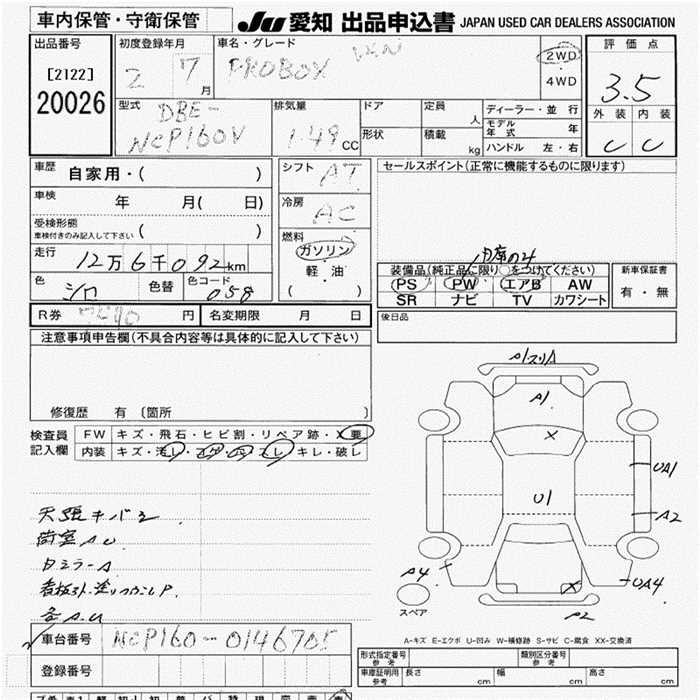 車内保管・守衛保管 JU 愛知 出品申込書 JAPAN USED CAR DEALERS ASSOCIATION
出品番号 初度登録年月 車名・グレード 評価点
[2122] 2 7月 PROBOX VAN 2WD 3.5
20026 4WD 外装 内装
型式 DBE- 排気量 ドア 定員 人 ディーラー・並行
NCP160V 1.49 CC 形状 積載 kg モデル年式 年 C C
ハンドル 左・右
車歴 自家用・( ) シフト AT セールスポイント(正常に機能するものに限ります)
車検 年 月( 日) 冷房 AC
受検形態
車検付きのみ記入して下さい ( ) 燃料
ガソリン
走行 12万6千092km 軽・油
色 シロ 色替 色コード 058 ( )
装備品(純正品に限り○をつけてください) 新車保証書
PS PW エアB AW 有・無
SR ナビ TV カワシート
R券 円 名変期限 月 日 後日品
注意事項申告欄(不具合内容等は具体的に記入して下さい)
修復歴 有 [箇所 ]
検査員 FW キズ・飛石・ヒビ割・リペア跡・X要
記入欄 内装 キズ・汚レ・コゲ・穴・スレ・キレ・破レ
A1
X
U1
UA1
A2
A4
UA4
X
A2
スペア
天張キバミ
荷室AU
白ミラーA
A-キズ E-エクボ U-凹み W-補修跡 S-サビ C-腐食 XX-交換済
車台番号 NCP160-0146705
登録番号
形式指定番号 参考 類別区分番号 参考
車庫証明用 参考 長さ cm 幅 cm 高さ cm